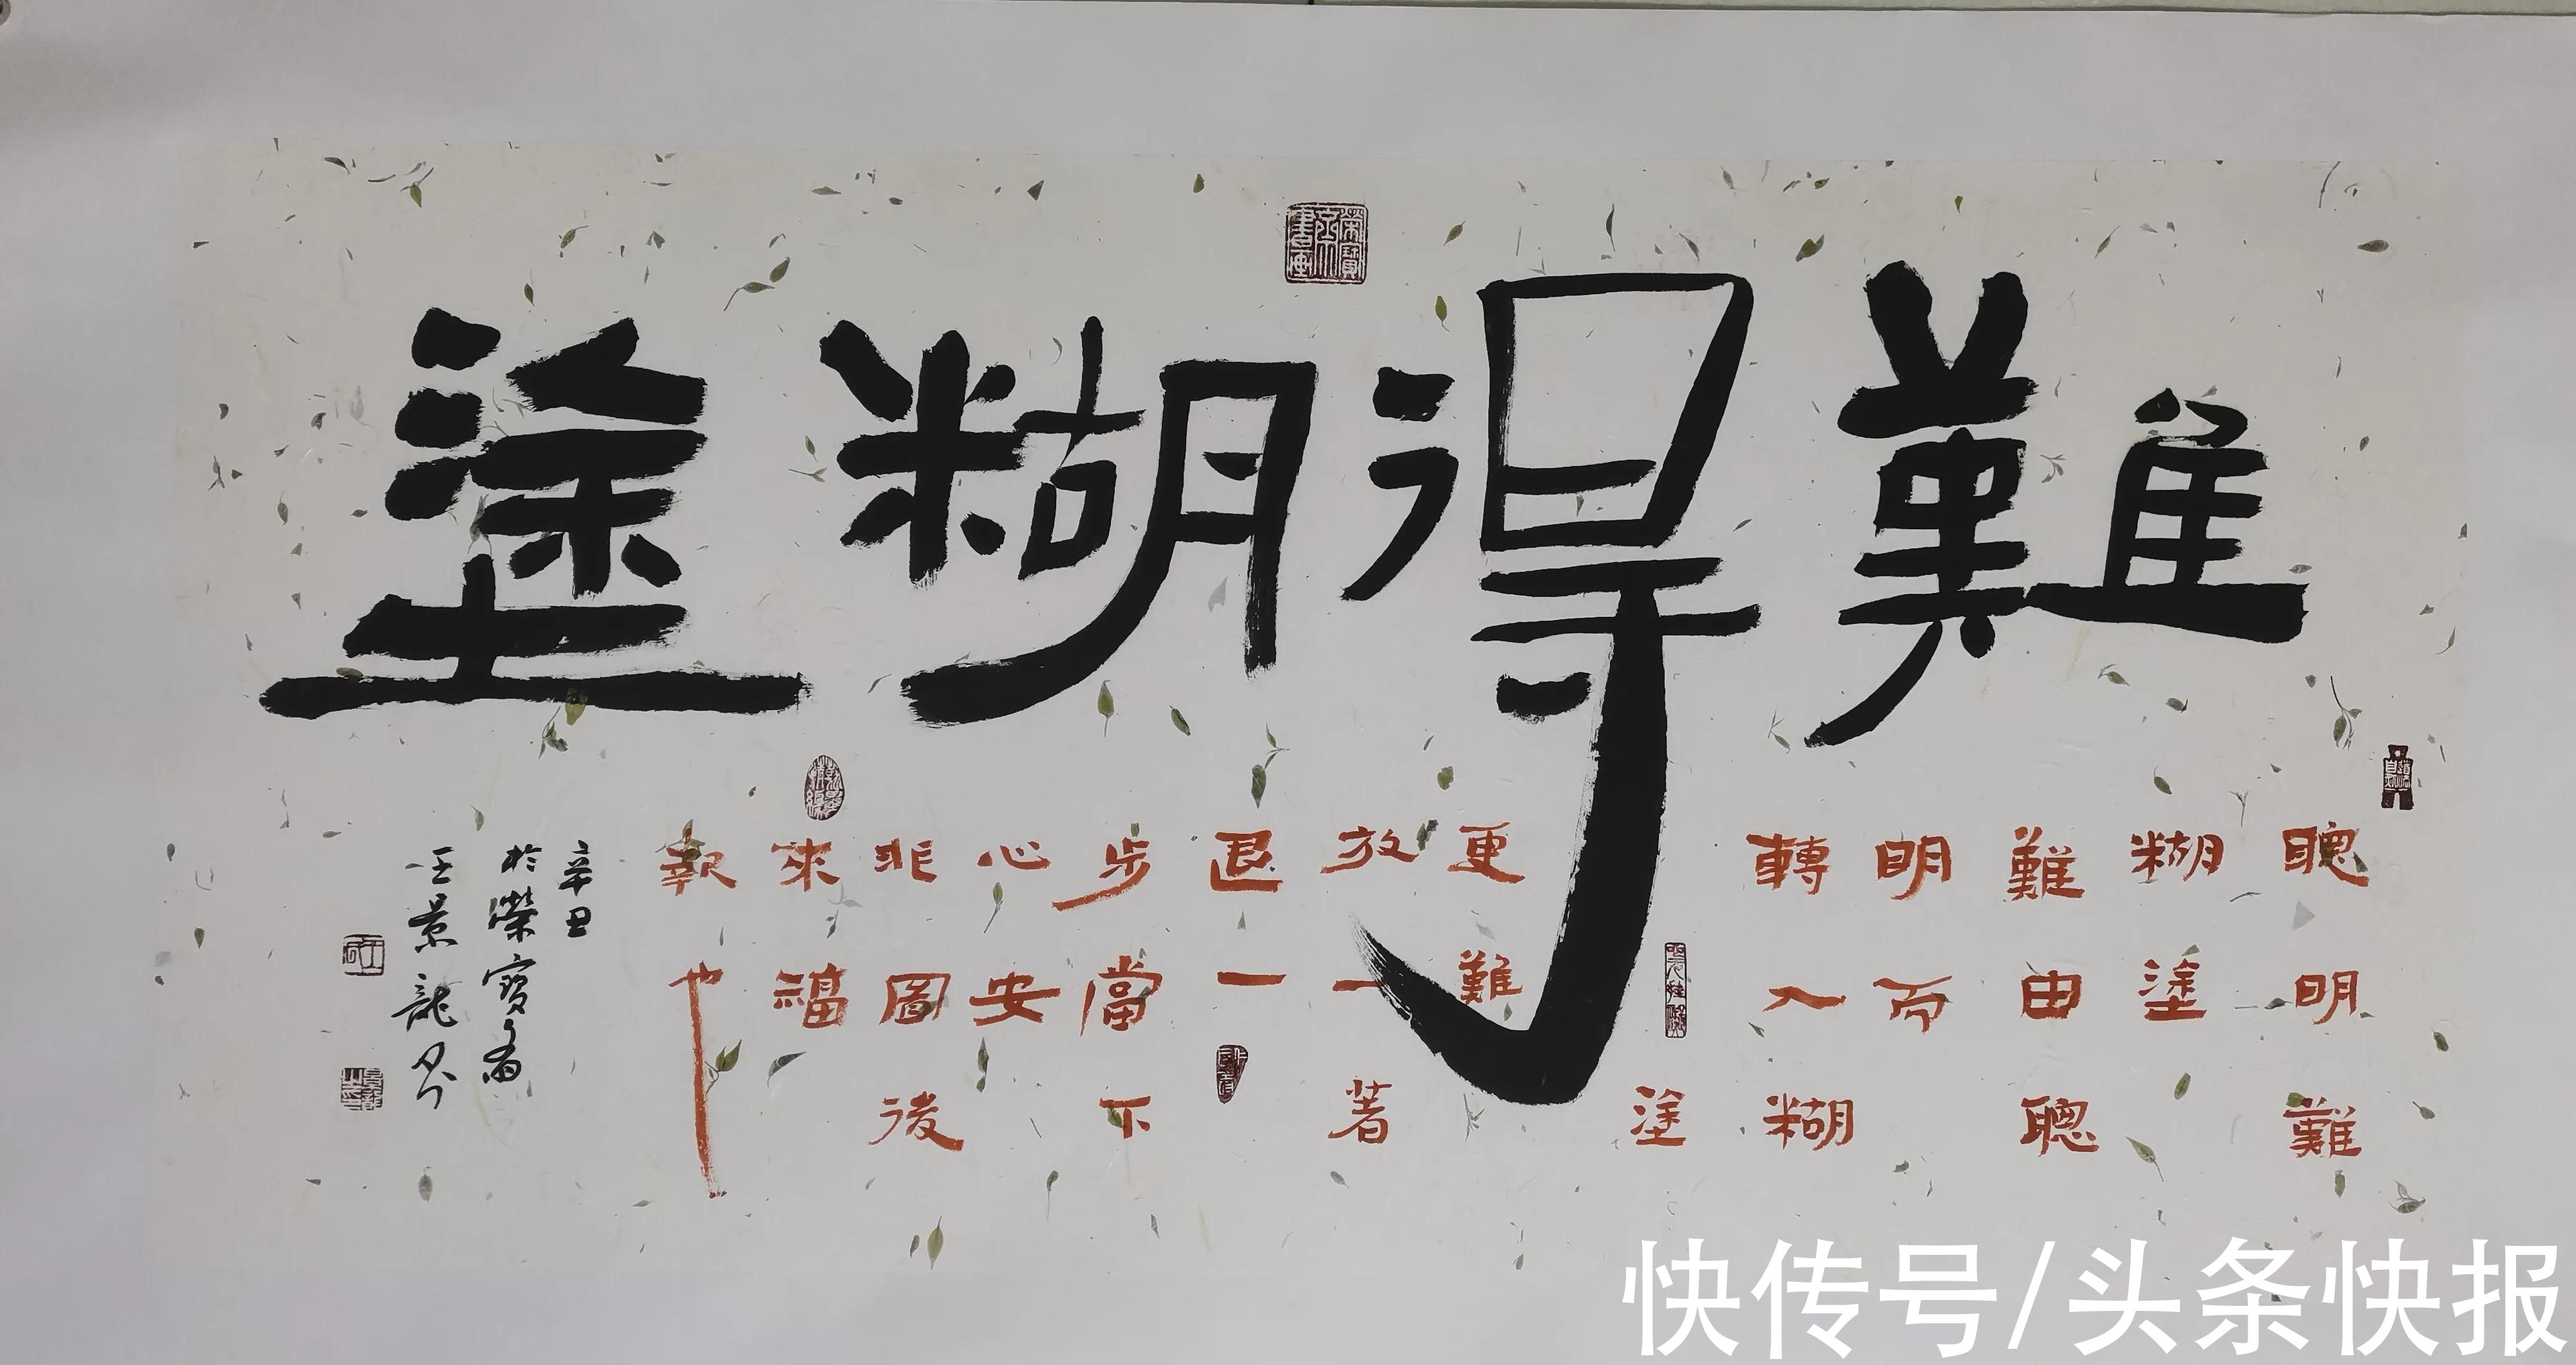 難得糊塗
聰明難
糊塗
難由聰
明而
轉入糊
塗
更難
放一著
退一
步當下
心安
非圖後
來福
報也
辛丑
於榮寶齋
王景龍
快传号/头条快报